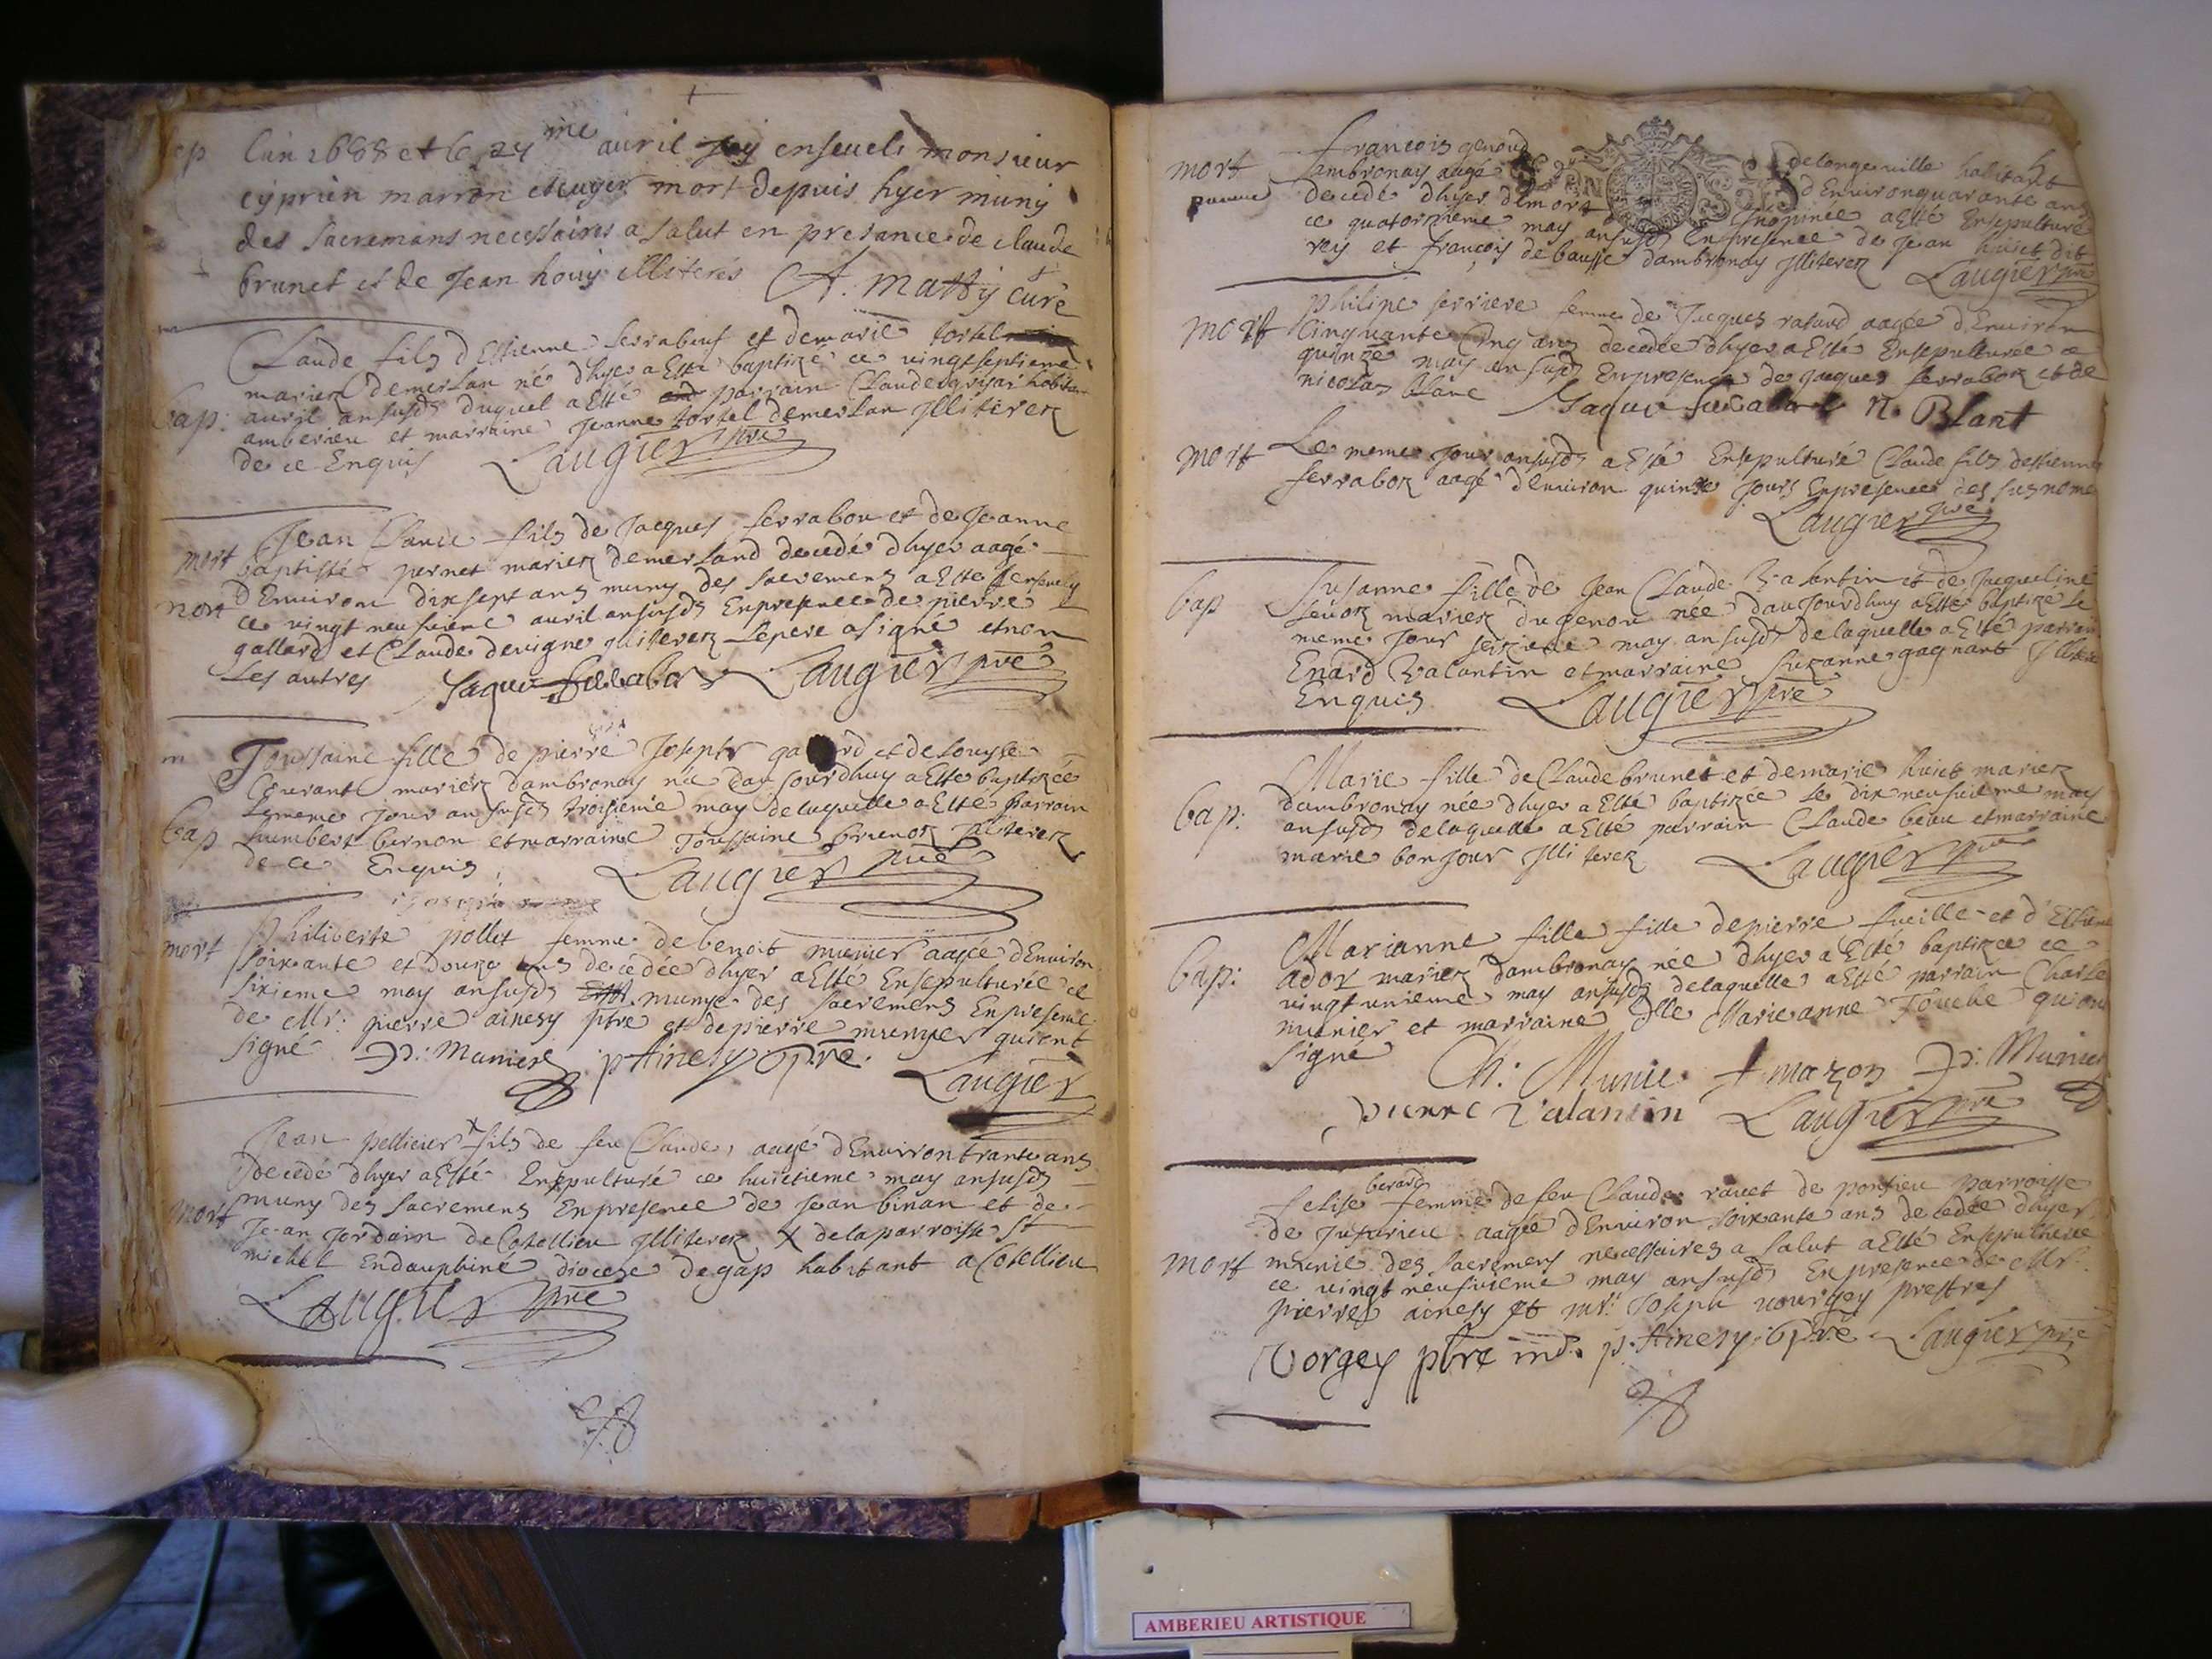 sep
L'an 1688 et le 24me avril jay enseveli monsieur
cyprien marron escuyer mort depuis hyer muny
des sacremans necessaires a salut en presance de claude
brunet et de Jean houy illiterés A. Matty curé
Bap:
Claude fils d Estienne serrabeuf et de marie tortel
mariez demerlan né dhyer a Esté baptizé ce vingtseptieme
avril ansusd duquel a Esté parrain Claude habitan
amberieu et marraine Jeanne tortel demerlan Jlliterez
de ce Enquis Laugier pre
mort
mort
Jean Claude fils de Jacques serrabou et de Jeanne
baptiste pernet mariez demerland decedé dhyer aagé
d Environ dix sept ans muny des sacremens a Esté
ce vingt neufvieme avril ansusd En presence de pierre
gallard et Claude devigne Jlliterez le pere a signé et non
Les autres Jaque Laugier pre
bap
Toussaine fille de pierre Joseph ga rd et de Louyse
Courant mariez dambronay née daujourdhuy a Esté baptizée
le meme Jour ansusd troisieme may de laquelle a Esté parrain
humbert bernon et marraine Toussaine brunot Jlliterez
de ce Enquis Laugier pre
mort
Philiberte pollet femme de benoit munier aagée d Environ
soixante et douze ans decedée dhyer a Esté Ensepulturée ce
sixieme may ansusd munye des sacremens En presence
de Mr: pierre ainesy ptre et de pierre munyer qui ont
signé P: Munier p Ainesy ptre Laugier
mort
Jean pellicier fils de feu Claude, aagé d Environ trante ans
decedé dhyer a Esté Ensepulturé ce huictieme may ansusd
muny des sacremens En presence de Jean binan et de
Jean Jordain de Cotellieu Jlliterez X de la parroisse St
michel En dauphiné diocese de gap habitant a Cotellieu
Laugier pre
mort
francois genoud de longeville habitant
dambronay aagé d Environ quarante ans
decedé dhyer de mort Inopinée a Esté Ensepulturé
ce quatorzieme may ansusd En presence de Jean huict dit
roy et francois debausse dambronay Jlliterez Laugier pre
mort
Philipe ferriere femme de Jacques ravand aagée d Environ
Cinquante Cinq ans decedée dhyer a Esté Ensepulturée ce
quinze may ansusd En presence de Jacques serraboz et de
nicolas blanc Jaque N. Blant
mort
Le meme Jour ansusd a Esté Ensepulturé Claude fils destienne
serraboz aagé d Environ quinze Jours En presence des susnomé
Laugier pre
bap
Susanne fille de Jean Claude Valentin et de Jacqueline
mariez du genou née daujourdhuy a Esté baptizé le
meme Jour seizieme may ansusd de laquelle a Esté parrain
Enard Valantin et marraine Suzanne gagnant
Enquis Laugier pre
bap:
Marie fille de Claude brunet et de marie huict mariez
dambronay née dhyer a Esté baptizée le dix neufvieme may
ansusd de laquelle a Esté parrain Claude beau et marraine
marie bonjour Jlliterez Laugier pre
bap:
Marianne fille fille de pierre fueille et d Estien
ador mariez dambronay née dhyer a Esté baptizée ce
vingt unieme may ansusd de laquelle a Esté parrain Charle
munier et marraine Dlle Marieanne Touche qui ont
signé Ch: Munie mazon P: Munier
pierre Valantin Laugier pre
mort
berard
felise femme de feu Claude ravet de ponsieu parroisse
de Jusurieu aagée d Environ soixante ans decedée dhyer
munie des sacremens necessaires a salut a Esté Ensepulturée
ce vingt neufvieme may ansusd En presence de Mr:
pierre ainesy et mr: Joseph vourgey prestres
Vorgey ptre p. Ainesy ptre Laugier pre
AMBERIEU ARTISTIQUE